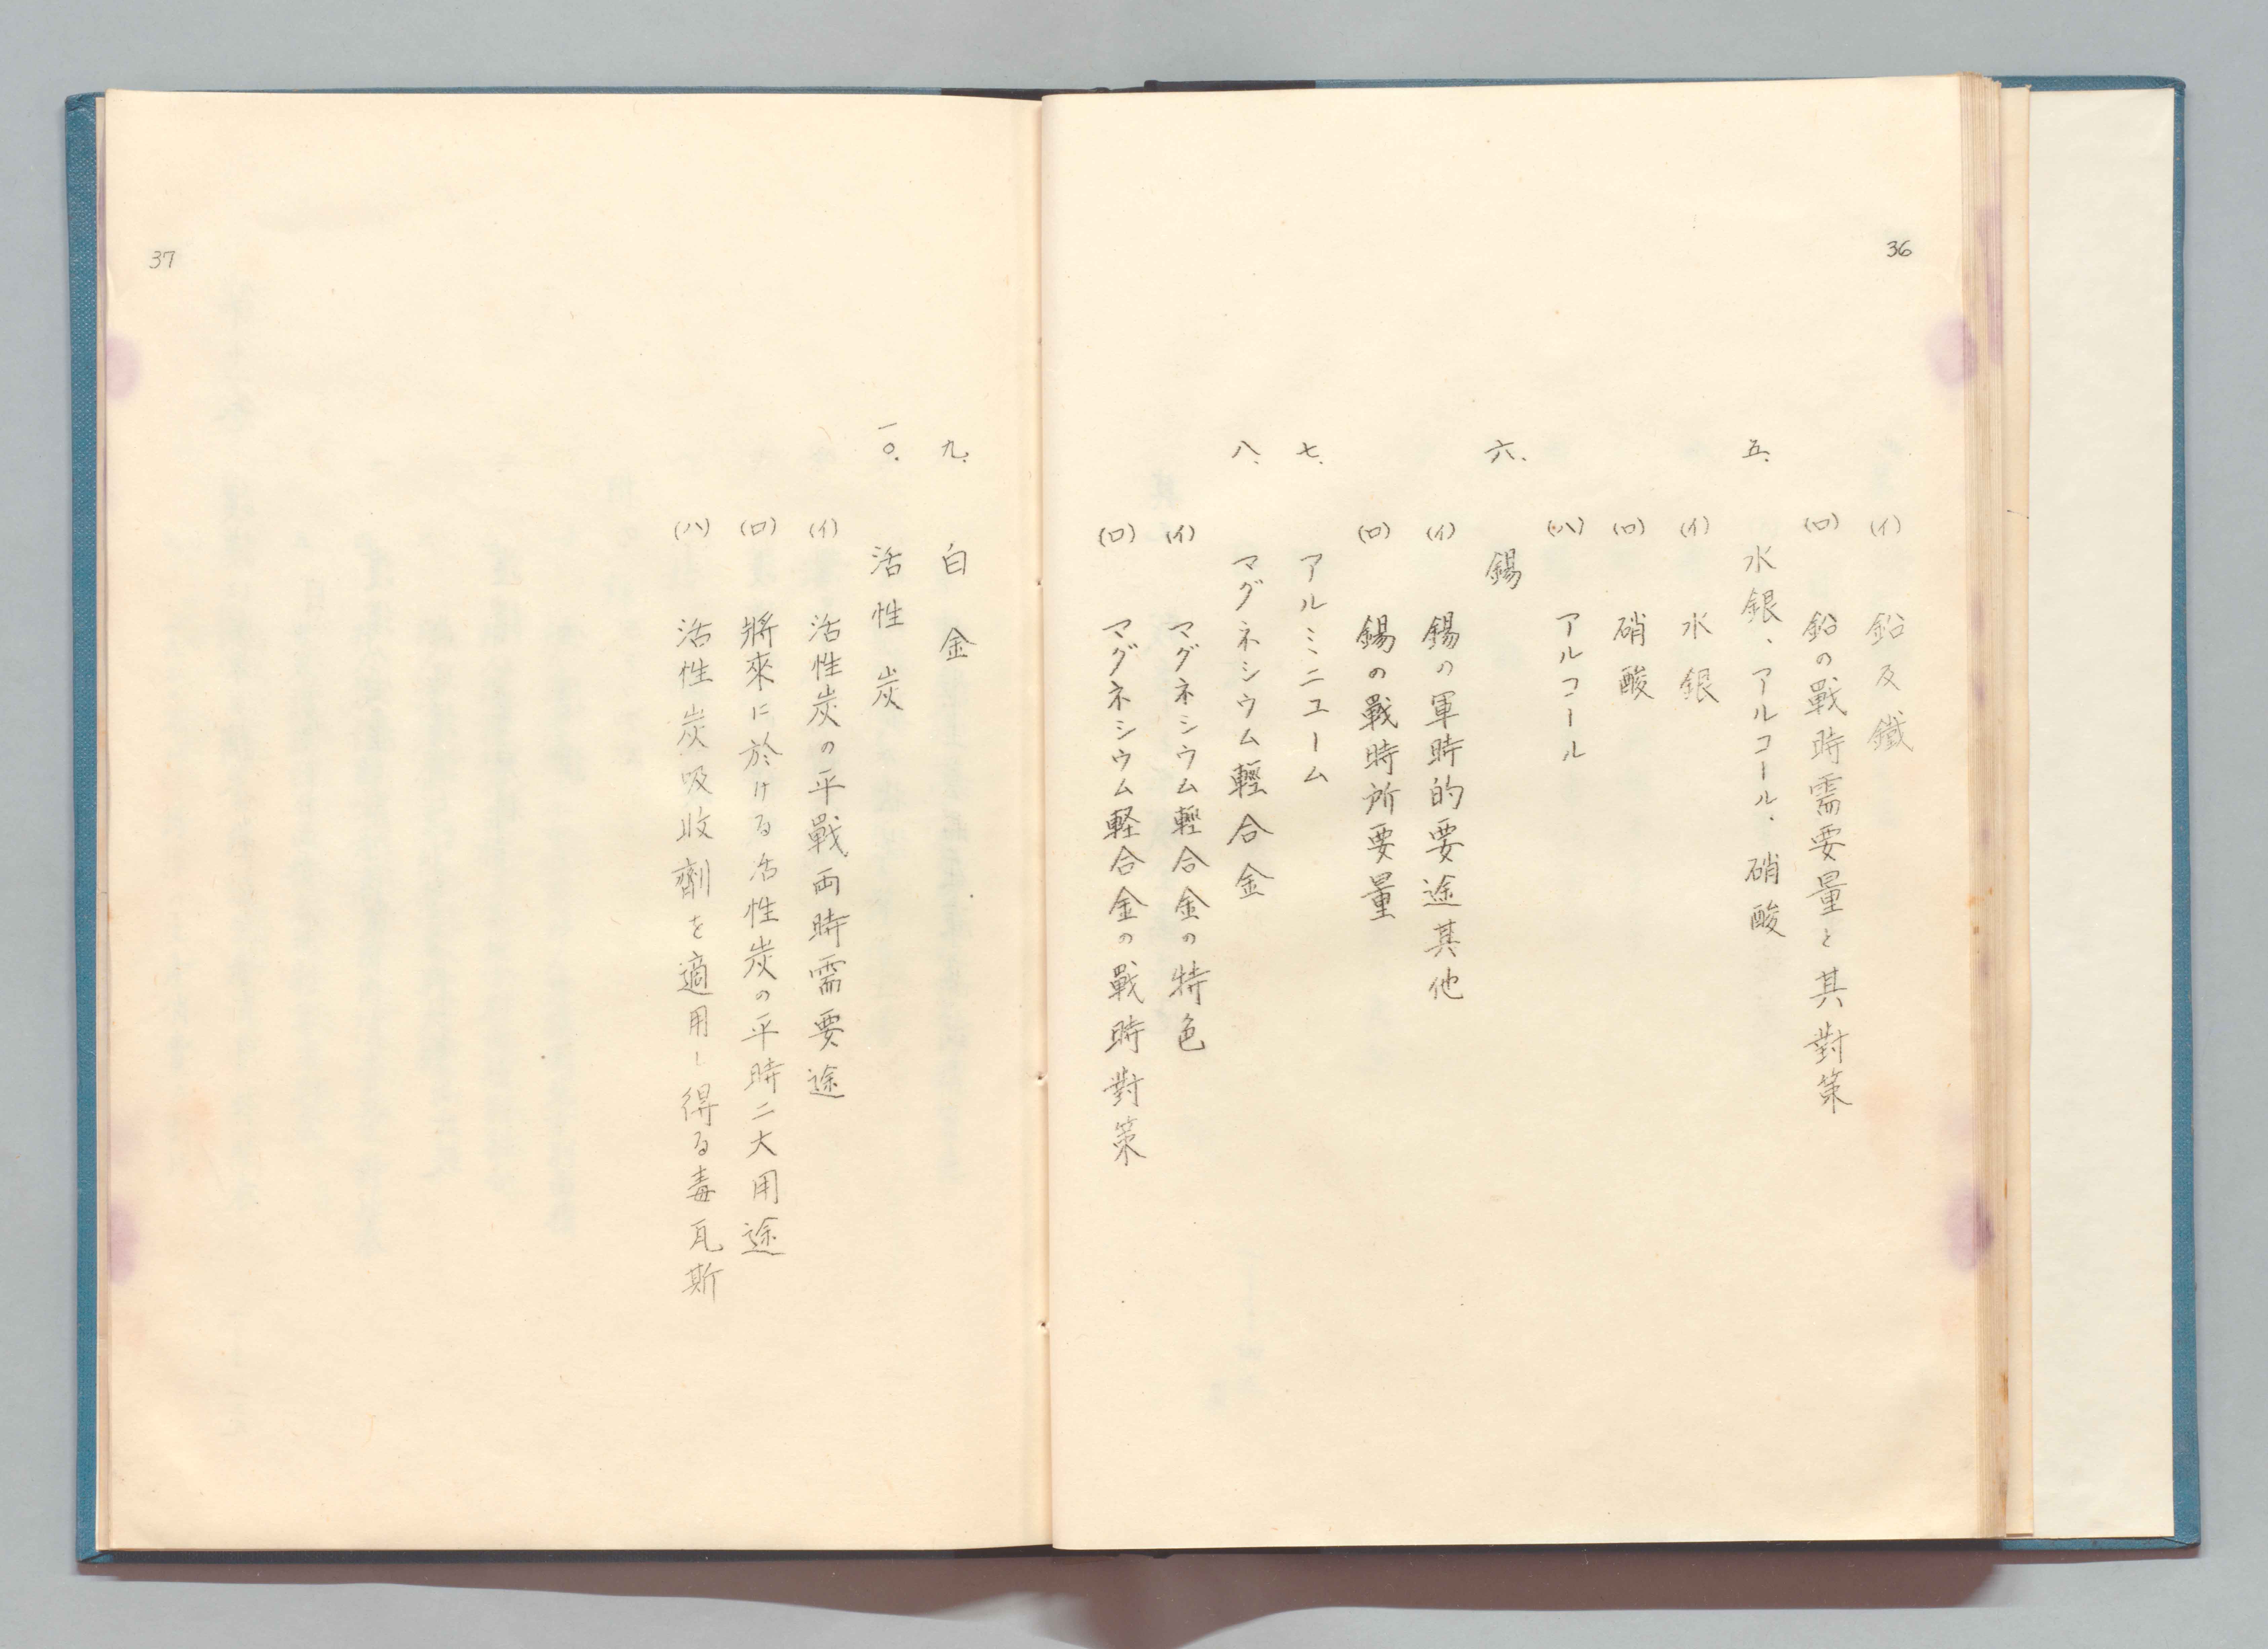 36
(イ) 鉛及鐵
(ロ) 鉛の戰時需要量と其對策
五、水銀、アルコール、硝酸
(イ) 水銀
(ロ) 硝酸
(ハ) アルコール
六、錫
(イ) 錫の軍時的要途其他
(ロ) 錫の戰時所要量
七、アルミニユーム
八、マグネシウム輕合金
(イ) マグネシウム輕合金の特色
(ロ) マグネシウム軽合金の戰時對策
37
九、白金
一〇、活性炭
(イ) 活性炭の平戰両時需要途
(ロ) 將來に於ける活性炭の平時二大用途
(ハ) 活性炭吸收劑を適用し得る毒瓦斯